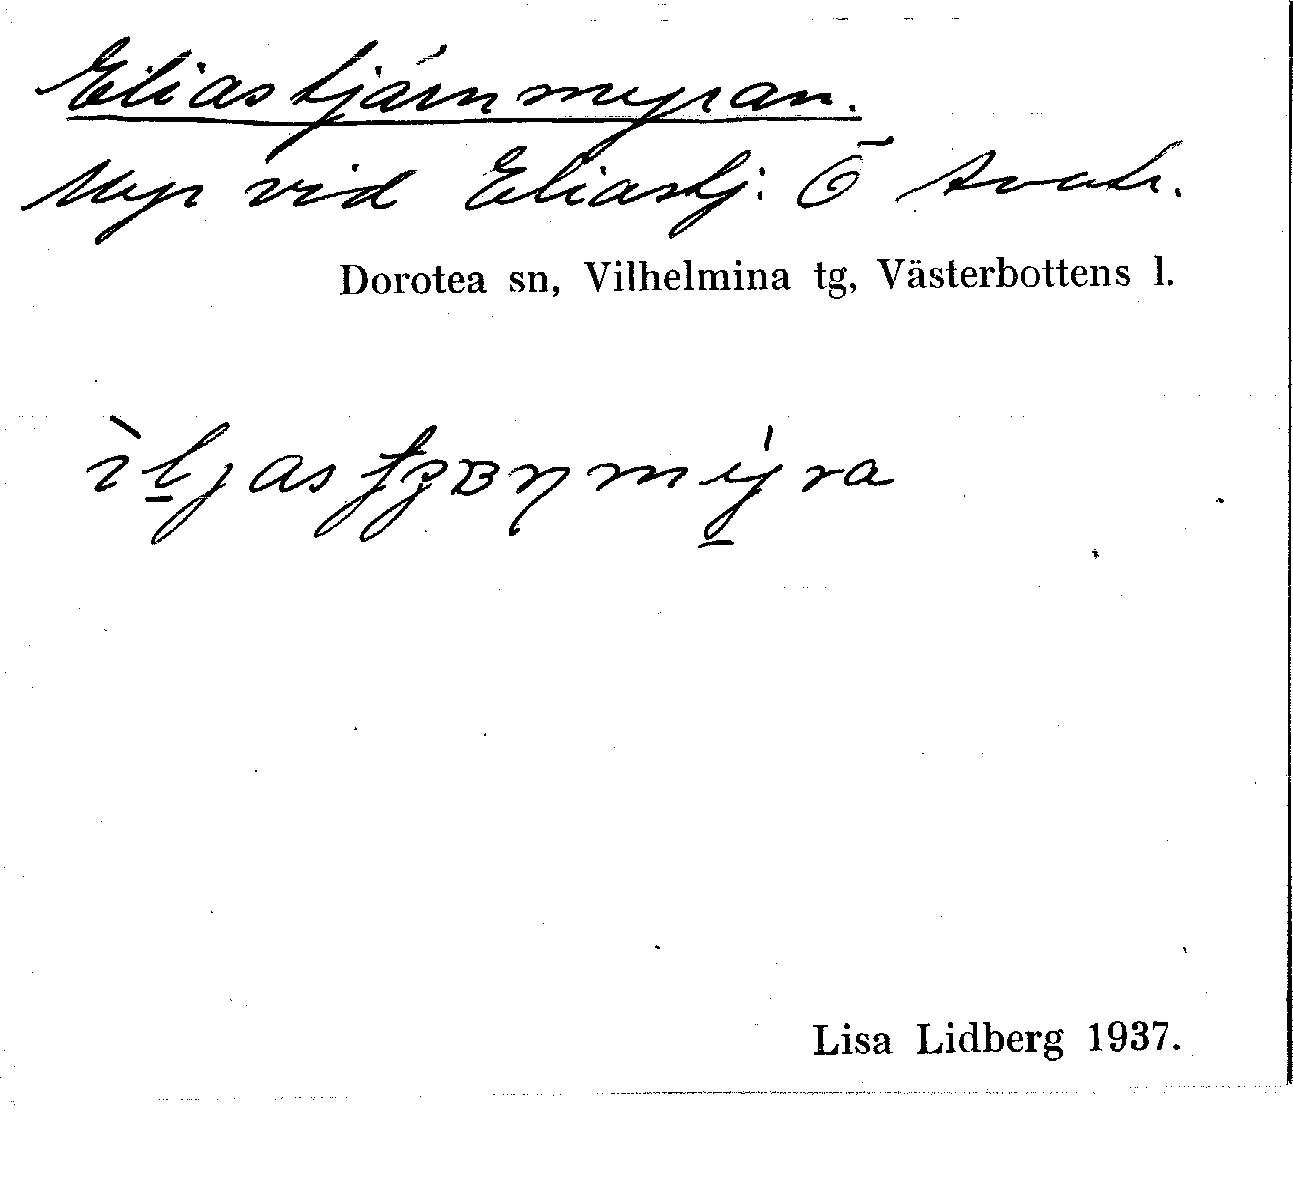 Eliastjärnmyran.
Myr vid Eliastj: Ö
Dorotea sn, Vilhelmina tg, Västerbottens l.
Lisa Lidberg 1937.